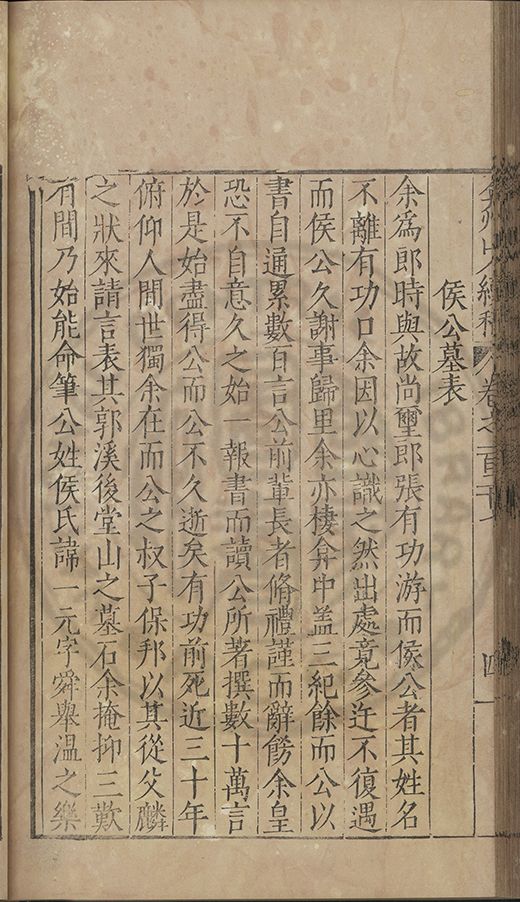 侯公墓表
余為郎時與故尚璽郎張有功游而侯公者其姓名
不離有功口余因以心識之然出處竟參迕不復遇
而侯公久謝事歸里余亦棲弇中盖三紀餘而公以
書自通累數百言公前輩長者脩禮謹而辭傍余皇
恐不自意久之始一報書而讀公所著撰數十萬言
於是始盡得公而公不久逝矣有功前死近三十年
俯仰人間世獨余在而公之叔子保邦以其從父麟
之狀來請言表其郭溪後堂山之墓石余掩抑三歎
有間乃始能命筆公姓侯氏諱一元字舜舉溫之樂